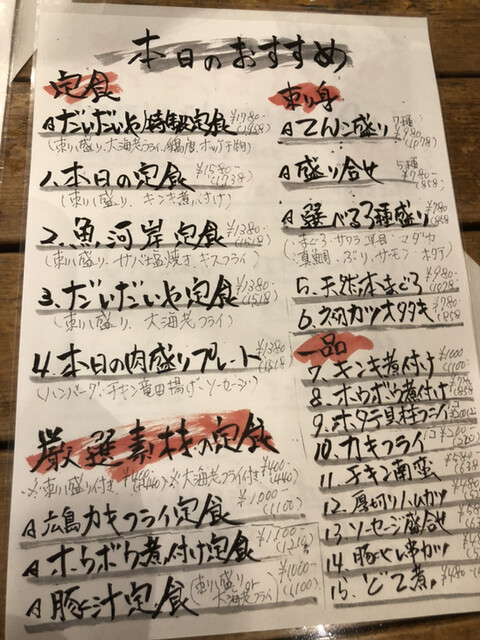 本日のおすすめ
定食
A だいだいや特製定食 ¥1780-
(刺し盛り、大海老フライ、
1、本日の定食 ¥1580- (1738)
(刺し盛り、キンキ煮付け)
2、魚河岸定食 ¥1380- (1518)
(刺し盛り・サバ塩焼き・キスフライ)
3、だいだいや定食 ¥1380- (1518)
(刺し盛り、大海老フライ)
4、本日の肉盛りプレート ¥1380 (1518
(ハンバーグ・チキン竜田揚げ・ソーセージ)
厳選素材の定食
※刺し盛り付き ¥400- (440) ※大海老フライ付き ¥400- (440)
A 広島カキフライ定食 ¥1,000- (1100)
A ホウボウ煮付け定食 ¥1100- (1210)
A 豚汁定食 (刺し盛り or 大海老フライ) ¥1000- (1100)
刺し身
A てんこ盛り 7種 ¥980 (1078)
A 盛り合せ 5種 ¥780- (858)
A 選べる3種盛り ¥780 (858
(まぐろ・サワラ
真鯛・ぶり・サーモン・ホタテ)
5、天然本まぐろ ¥980- (1078
6、初カツオタタキ ¥780 (858
一品
7、キンキ煮付け ¥1000 (1100
8、ホウボウ煮付け ¥780 (858
9、ホタテ貝柱フライ
10、カキフライ 1コ ¥200 (220)
11、チキン南蛮 ¥580 (638
12、厚切りハムカツ
13、ソーセージ盛合せ
14、豚ヒレ串カツ
15、どて煮 ¥480-